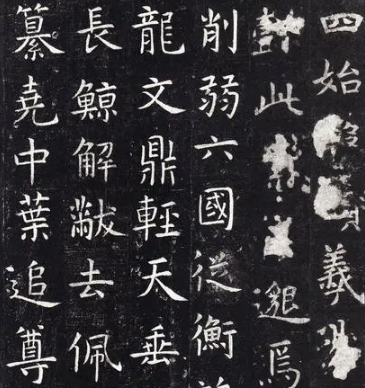 四始義
此邈焉
削弱六國從衡
龍文鼎輕天垂
長鯨解黻去佩
纂堯中葉追尊